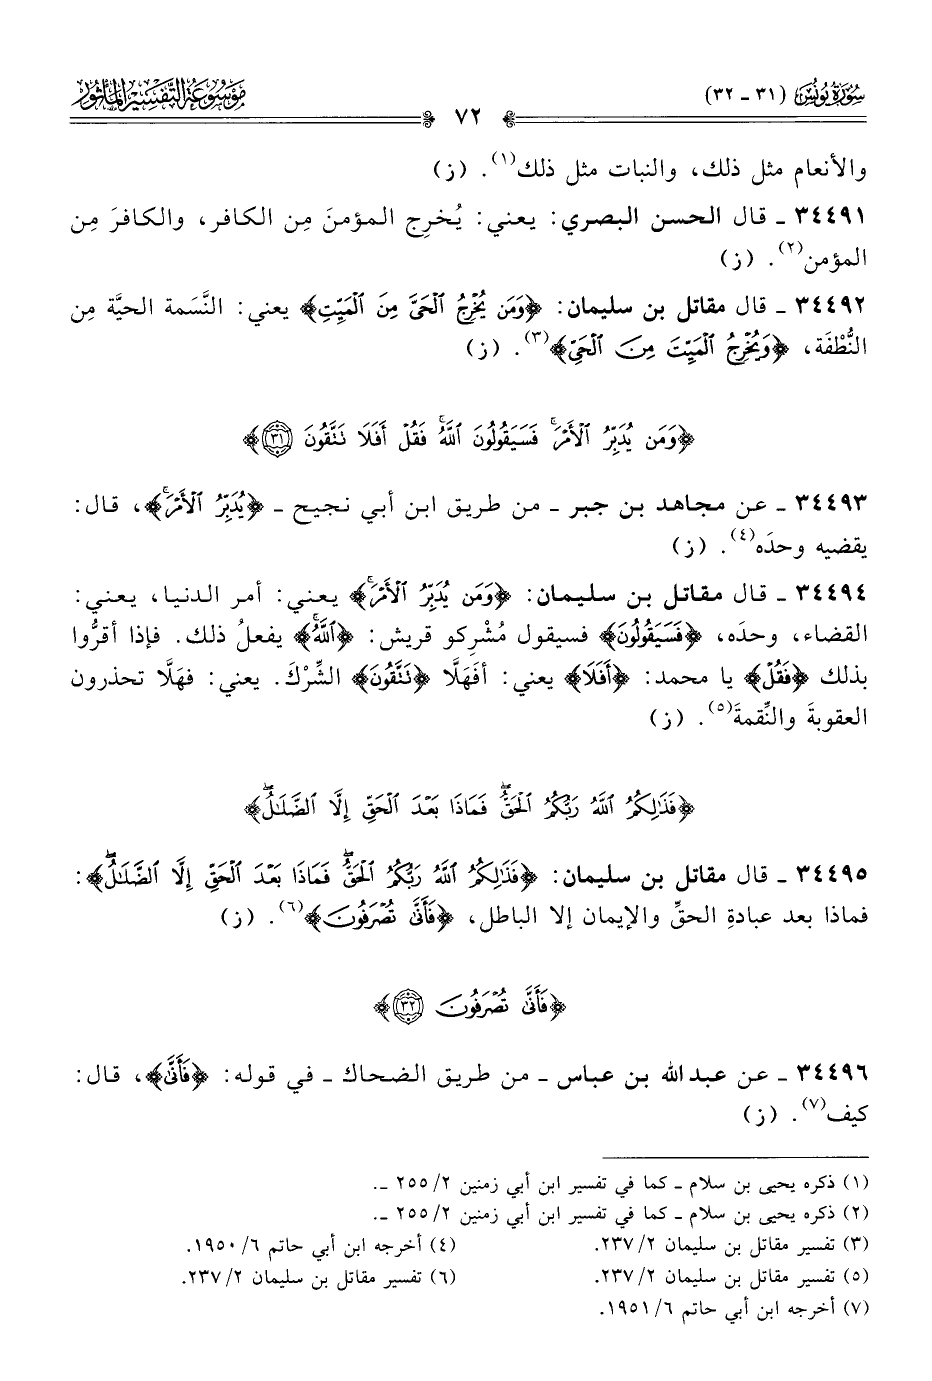 سُورَةُ يُونُسَ (٣١ - ٣٢)
٧٢
مَوْسُوعَةُ التَّفْسِيرِ المَأْثُورِ
والأنعام مثل ذلك، والنبات مثل ذلك(١). (ز)
٣٤٤٩١ - قال الحسن البصري: يعني: يُخرِج المؤمنَ مِن الكافر، والكافرَ مِن
المؤمن(٢). (ز)
٣٤٤٩٢ - قال مقاتل بن سليمان: ﴿وَمَن يُخْرِجُ ٱلْحَىَّ مِنَ ٱلْمَيِّتِ﴾ يعني: النَّسَمة الحيَّة مِن
النُّطْفَة، ﴿وَيُخْرِجُ ٱلْمَيِّتَ مِنَ ٱلْحَىِّ﴾(٣). (ز)
﴿وَمَن يُدَبِّرُ ٱلْأَمْرَۚ فَسَيَقُولُونَ ٱللَّهُۚ فَقُلْ أَفَلَا تَتَّقُونَ ٣١﴾
٣٤٤٩٣ - عن مجاهد بن جبر - من طريق ابن أبي نجيح - ﴿يُدَبِّرُ ٱلْأَمْرَۚ﴾، قال:
يقضيه وحدَه(٤). (ز)
٣٤٤٩٤ - قال مقاتل بن سليمان: ﴿وَمَن يُدَبِّرُ ٱلْأَمْرَۚ﴾ يعني: أمر الدنيا، يعني:
القضاء، وحدَه، ﴿فَسَيَقُولُونَ﴾ فسيقول مُشْرِكو قريش: ﴿ٱللَّهُۚ﴾ يفعلُ ذلك. فإذا أقرُّوا
بذلك ﴿فَقُلْ﴾ يا محمد: ﴿أَفَلَا﴾ يعني: أفهَلَّا ﴿تَتَّقُونَ﴾ الشِّرْكَ. يعني: فهَلَّا تحذرون
العقوبةَ والنِّقمةَ(٥). (ز)
﴿فَذَٰلِكُمُ ٱللَّهُ رَبُّكُمُ ٱلْحَقُّۖ فَمَاذَا بَعْدَ ٱلْحَقِّ إِلَّا ٱلضَّلَٰلُۖ﴾
٣٤٤٩٥ - قال مقاتل بن سليمان: ﴿فَذَٰلِكُمُ ٱللَّهُ رَبُّكُمُ ٱلْحَقُّۖ فَمَاذَا بَعْدَ ٱلْحَقِّ إِلَّا ٱلضَّلَٰلُۖ﴾:
فماذا بعد عبادةِ الحقِّ والإيمان إلا الباطل، ﴿فَأَنَّىٰ تُصْرَفُونَ﴾(٦). (ز)
﴿فَأَنَّىٰ تُصْرَفُونَ ٣٢﴾
٣٤٤٩٦ - عن عبد الله بن عباس - من طريق الضحاك - في قوله: ﴿فَأَنَّىٰ﴾، قال:
كيف(٧). (ز)
(١) ذكره يحيى بن سلام - كما في تفسير ابن أبي زمنين ٢/ ٢٥٥ -.
(٢) ذكره يحيى بن سلام - كما في تفسير ابن أبي زمنين ٢/ ٢٥٥ -.
(٣) تفسير مقاتل بن سليمان ٢/ ٢٣٧. (٤) أخرجه ابن أبي حاتم ٦/ ١٩٥٠.
(٥) تفسير مقاتل بن سليمان ٢/ ٢٣٧. (٦) تفسير مقاتل بن سليمان ٢/ ٢٣٧.
(٧) أخرجه ابن أبي حاتم ٦/ ١٩٥١.